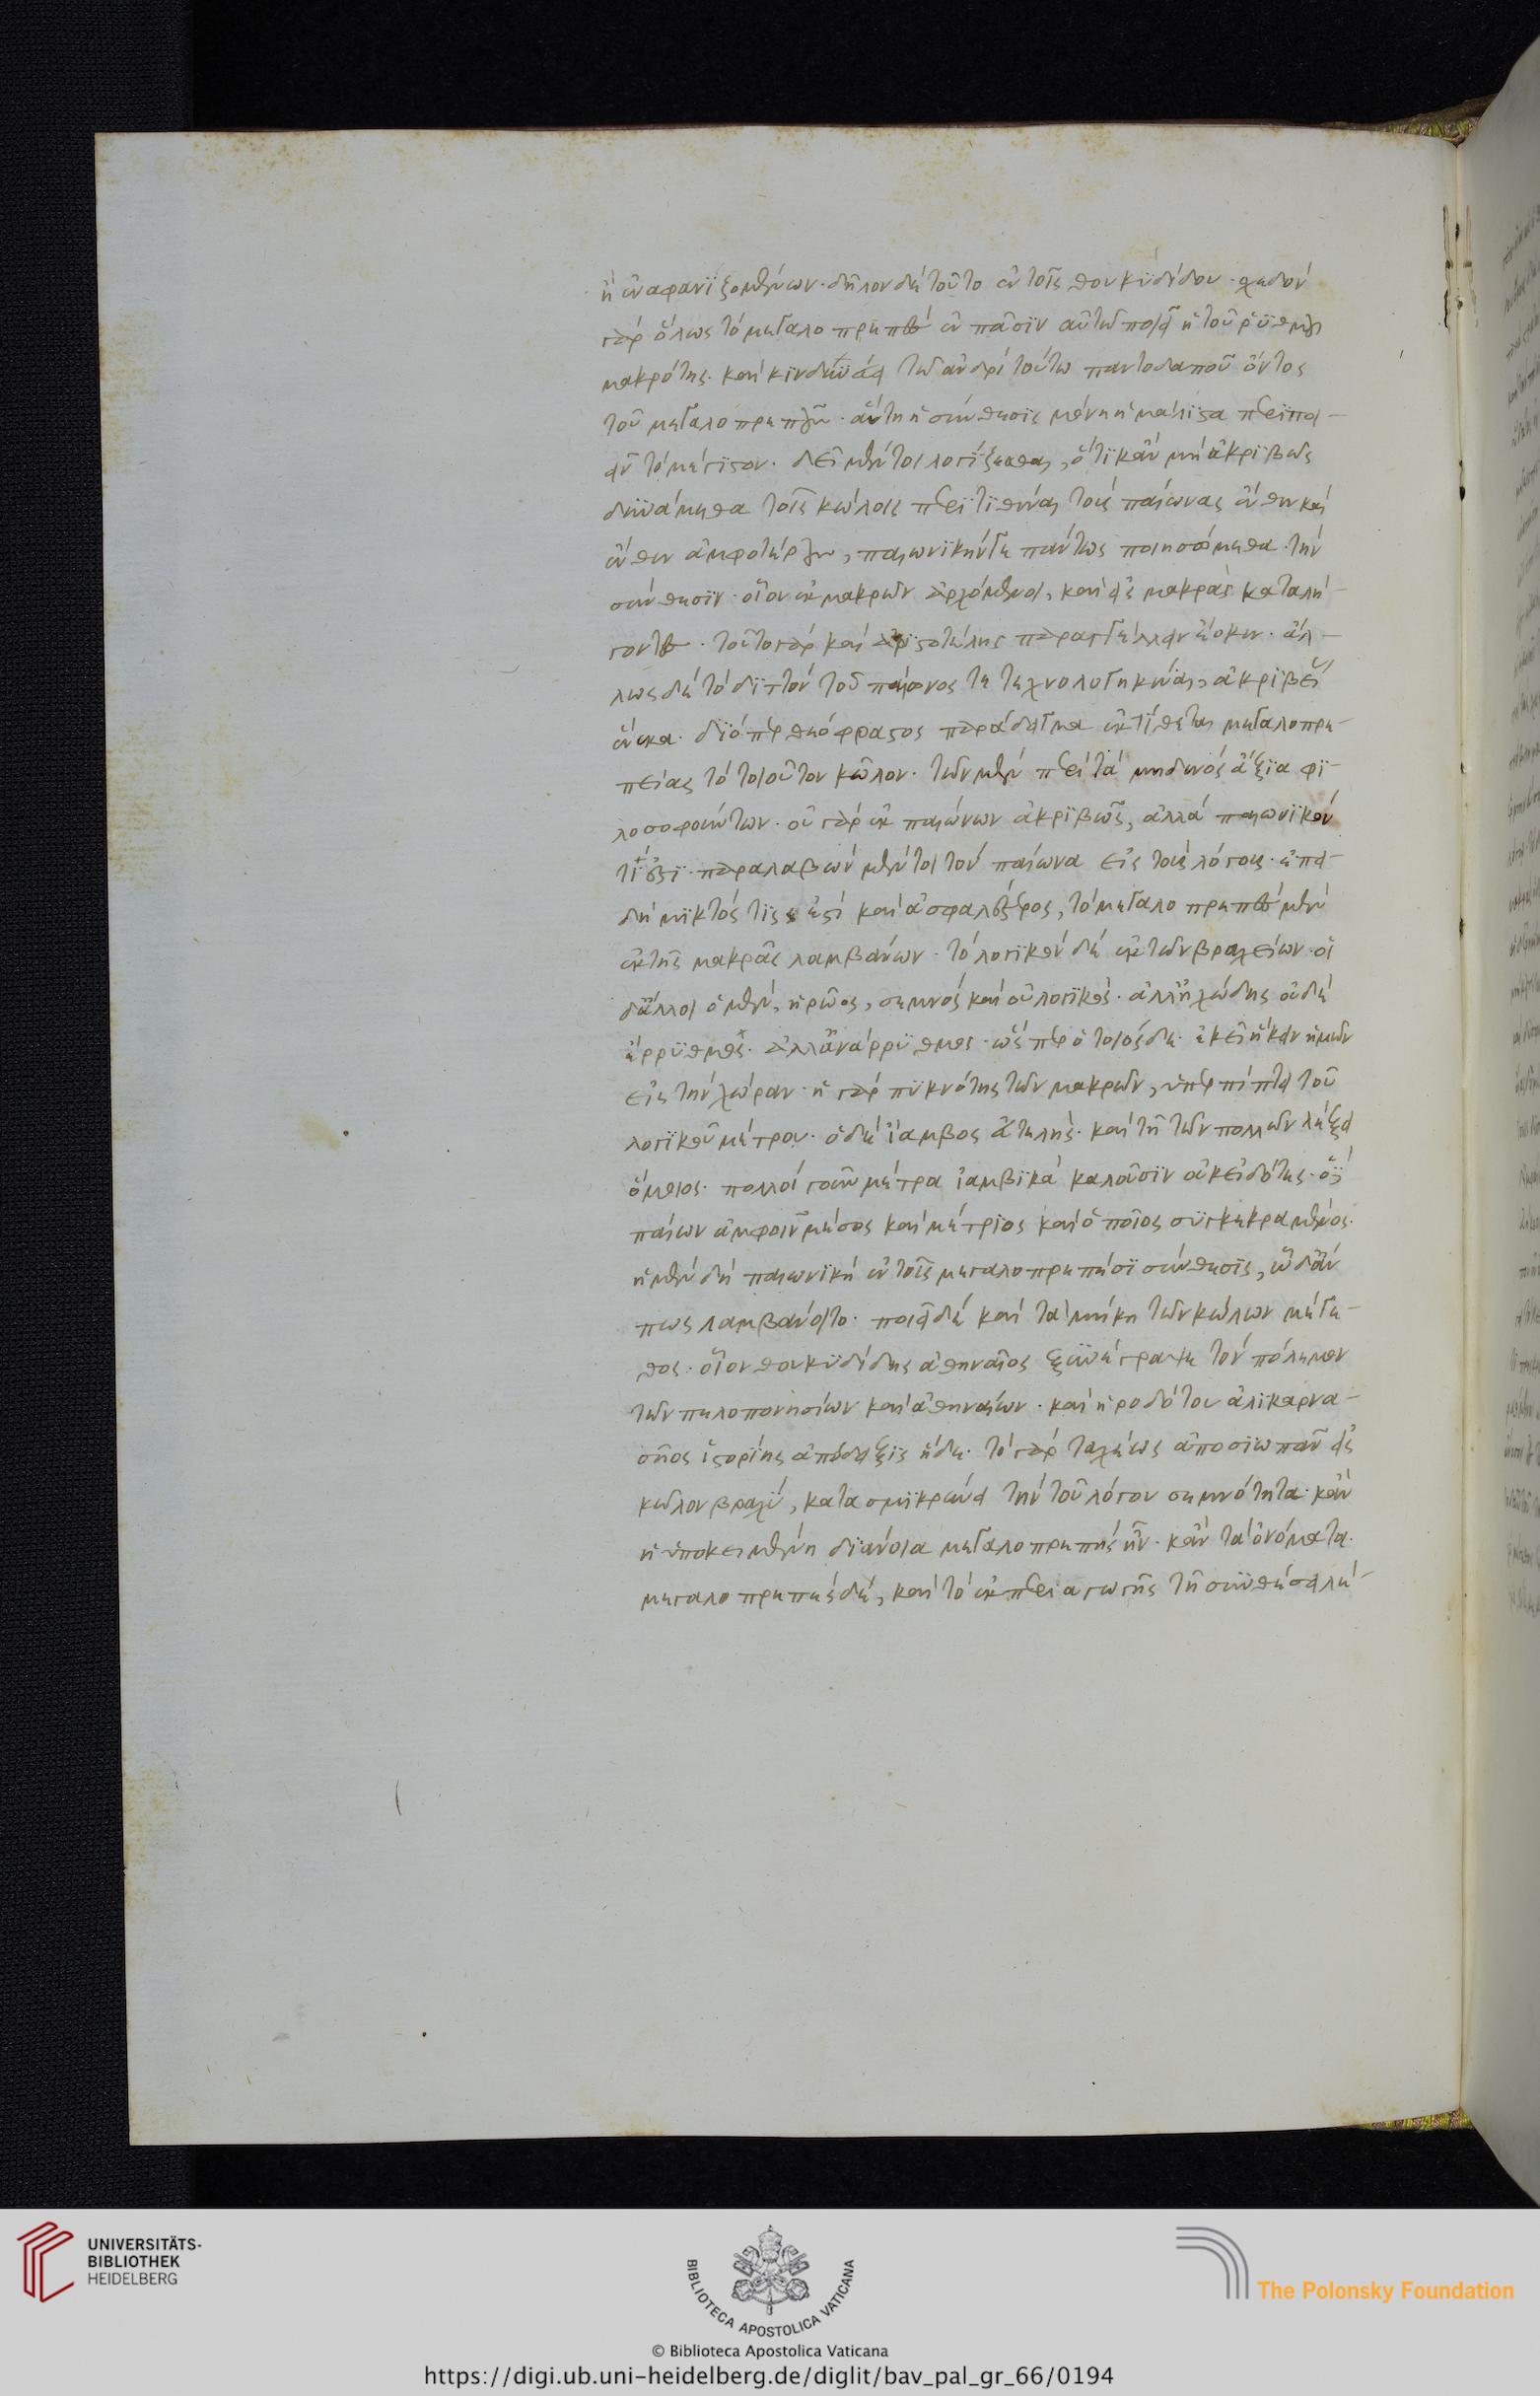 ἢ ἐναφανϊζομένων· δῆλον δὲ τοῦτο ἐν τοῖς θουκϋδίδου· σχεδὸν
γὰρ ὅλως τὸ μεγαλοπρεπὲς ἐν πᾶσϊν αὐτῶ ποιεῖ ἡ τοῦ ῥϋθμοῦ
μακρότης· καὶ κϊνδϋνεύει τῶ ἀνδρὶ τούτω παντοδαποῦ ὄντος
τοῦ μεγαλοπρεποῦς· αὕτη ἡ σύνθεσϊς μόνη ἢ μάλϊστα περϊποι-
εῖν τὸ μέγϊστον. δεῖ μέντοι λογίζεσθαι, ὅτϊ κἂν μὴ ἀκρϊβῶς
δυνάμεθα τοῖς κώλοις περϊτϊθέναι τοὺς παίωνας ἔνθεν καὶ
ἔνθεν ἀμφοτέρους, παιωνϊκήν γε πάντως ποιησόμεθα τὴν
σύνθεσϊν· οἷον ἐκ μακρῶν ἀρχόμενοι, καὶ εἰς μακρὰς καταλή-
γοντες· τοῦτο γὰρ καὶ ἀρϊστοτέλης παραγγέλλειν ἔοικεν· ἄλ-
λως δὲ τὸ δϊττὸν τοῦ παίωνος τετεχνολογηκέναι, ἀκρϊβείας
ἕνεκα· δϊόπερ θεόφραστος παράδειγμα ἐκτίθεται μεγαλοπρε-
πείας τὸ τοιοῦτον κῶλον· τῶν μὲν περὶ τὰ μηδενὸς ἄξϊα φϊ-
λοσοφούντων· οὐ γὰρ ἐκ παιώνων ἀκρϊβῶς, ἀλλὰ παιωνϊκόν
τί ἐστϊ· παραλαβὼν μέντοι τὸν παίωνα εἰς τοὺς λόγους· ἐπει-
δὴ μϊκτός τϊς ἐστὶ καὶ ἀσφαλέστερος, τὸ μεγαλοπρεπὲς μὲν
ἐκ τῆς μακρᾶς λαμβάνων· τὸ λογϊκὸν δὲ ἐκ τῶν βραχειῶν· οἱ
δἄλλοι ὁ μὲν, ἡρῶος, σεμνὸς καὶ οὐ λογϊκός· ἀλλἠχώδης οὐδὲ
ἔρρϋθμος· ἀλλἀνάρρϋθμος· ὥσπερ ὁ τοιόσδε· ἐκεῖ ἥκειν ἡμῶν
εἰς τὴν χώραν· ἡ γὰρ πϋκνότης τῶν μακρῶν, ὑπερπίπτει τοῦ
λογϊκοῦ μέτρου· ὁ δὲ ἴαμβος ἀτελής· καὶ τῆ τῶν πολλῶν λέξει
ὅμοιος· πολλοὶ γοῦν μέτρα ἰαμβϊκὰ καλοῦσϊν οὐκ εἰδότες· ὁ
παίων ἀμφοῖν μέσος καὶ μέτρϊος καὶ ὁ ποῖος σϋγκεκραμένος·
ἡ μὲν δὴ παιωνϊκὴ ἐν τοῖς μεγαλοπρεπέσϊ σύνθεσϊς, ὧ δἄν
πως λαμβάνοιτο· ποιεῖ δὲ καὶ τὰ μήκη τῶν κώλων μέγε-
θος· οἷον θουκϋδίδης ἀθηναῖος ξϋνέγραψε τὸν πόλεμον
τῶν πελοπονησίων καὶ ἀθηναίων· καὶ ἡροδότου ἁλϊκαρνα-
σῆος ἱστορίης ἀπόδειξϊς ἥδε· τὸ γὰρ ταχέως ἀποσϊωπᾶν εἰς
κῶλον βραχὺ, κατασμϊκρύνει τὴν τοῦ λόγου σεμνότητα· κἂν
ἡ ὑποκειμένη δϊάνοια μεγαλοπρεπὴς ἦν· κἂν τὰ ὀνόματα·
μεγαλοπρεπὲς δὲ, καὶ τὸ ἐκ περιαγωγῆς τῆ συνθέσει λέ-
UNIVERSITÄTS-
BIBLIOTHEK
HEIDELBERG
BIBLIOTECA APOSTOLICA VATICANA
The Polonsky Foundation
© Biblioteca Apostolica Vaticana
https://digi.ub.uni-heidelberg.de/diglit/bav_pal_gr_66/0194